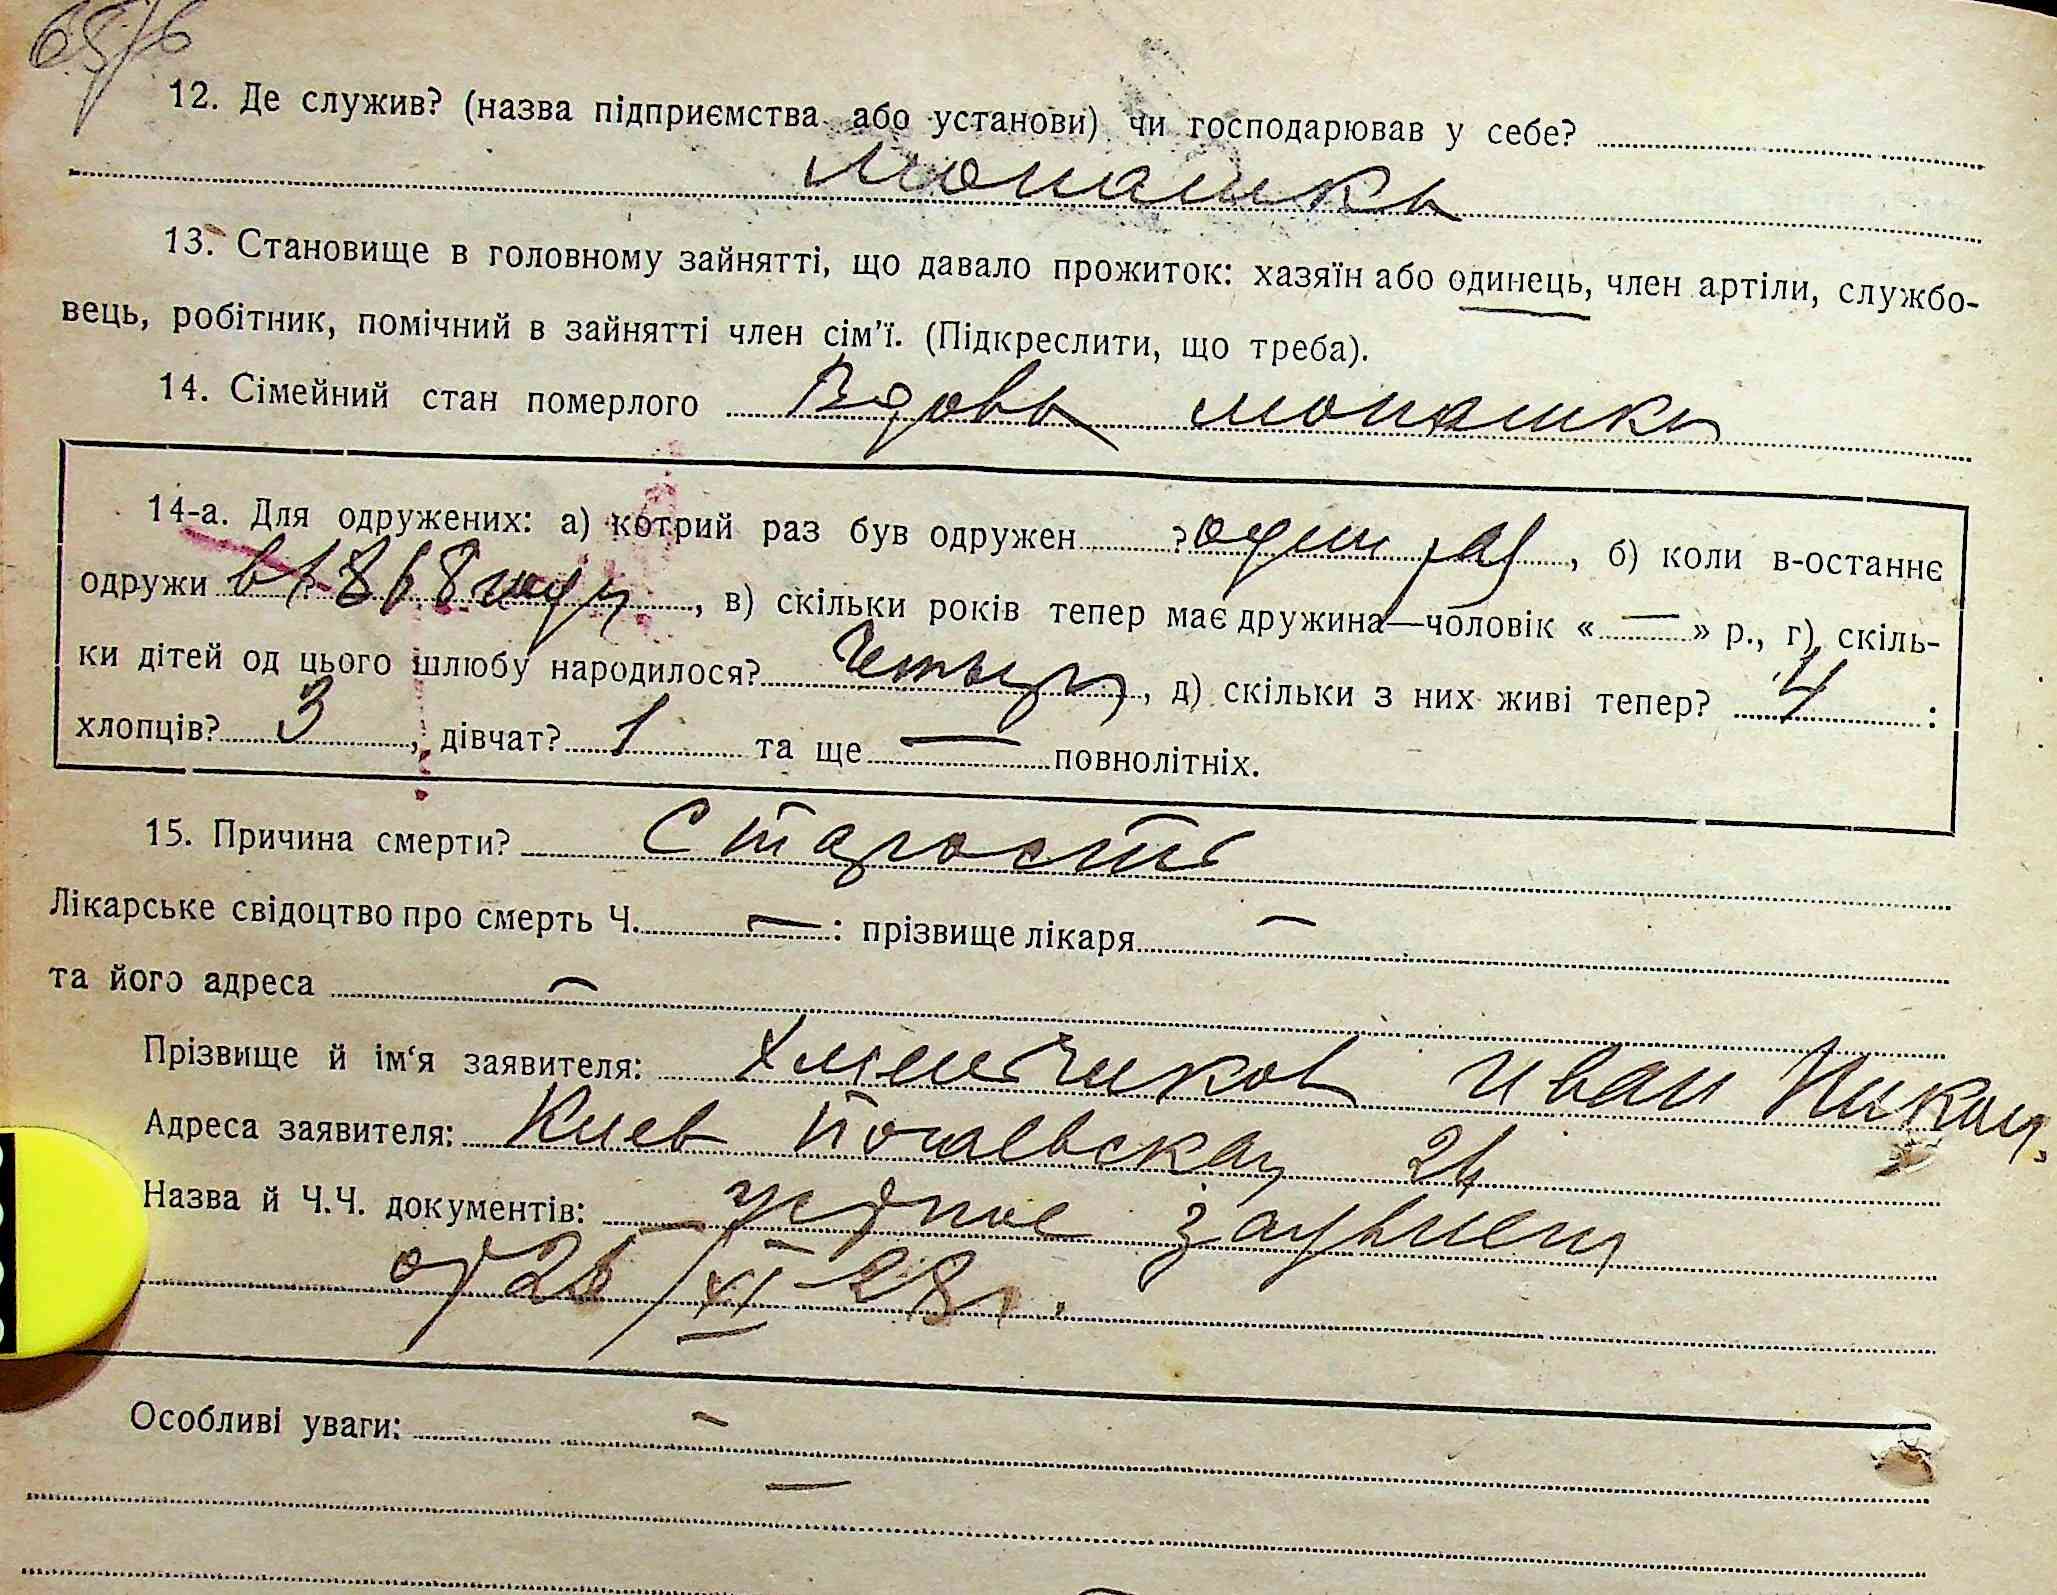 12. Де служив? (назва підприємства або установи) чи господарював у себе?
монашка
13. Становище в головному зайнятті, що давало прожиток: хазяїн або одинець, член артіли, службо-
вець, робітник, помічний в зайнятті член сім'ї. (Підкреслити, що треба).
14. Сімейний стан померлого Вдова монашка
14-а. Для одружених: а) котрий раз був одружен ? один раз, б) коли в-останнє
одружи в 1868 году, в) скільки років тепер має дружина—чоловік «—» р., г) скіль-
ки дітей од цього шлюбу народилося? Четыри, д) скільки з них живі тепер? 4 :
хлопців? 3, дівчат? 1 та ще — повнолітніх.
15. Причина смерти? Старость
Лікарське свідоцтво про смерть Ч. — : прізвище лікаря —
та його адреса —
Прізвище й ім'я заявителя: Хмельчиков Иван Никол.
Адреса заявителя: Киев 26
Назва й Ч.Ч. документів: устное
от 26/XI-28 г.
Особливі уваги: —
—